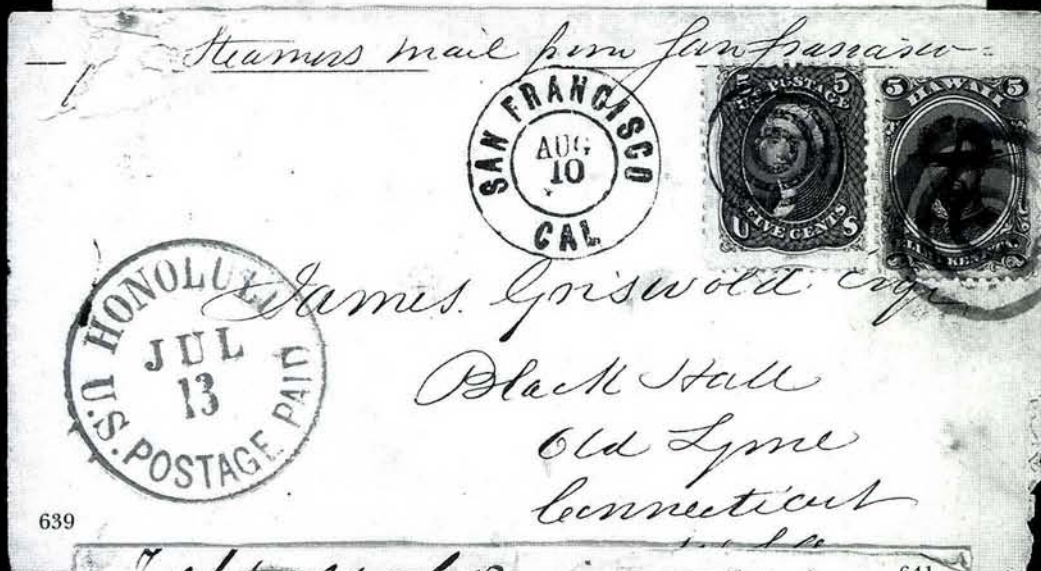 Steamers mail from San Francisco
SAN FRANCISCO
AUG
10
CAL
5 5
U.S. POSTAGE
FIVE CENTS
U S
5 5
HAWAII
HONOLULU
JUL
13
U.S. POSTAGE PAID
James Griswold Esqr
Black Hall
Old Lyme
Connecticut
639
641